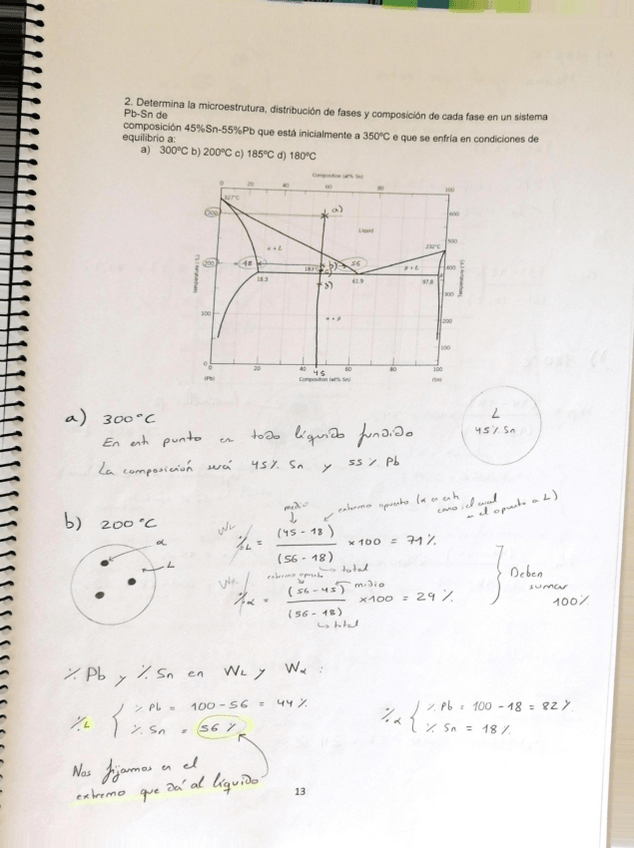 2. Determina la microestrutura, distribución de fases y composición de cada fase en un sistema
Pb-Sn de
composición 45%Sn-55%Pb que está inicialmente a 350ºC e que se enfría en condiciones de
equilibrio a:
a) 300ºC b) 200ºC c) 185ºC d) 180ºC
Composition (at% Sn)
0 20 40 60 80 100
327°C
300
a)
600
Liquid
500
232°C
α + L
200
18
183°C
b)
56
β + L
400
18.3
61.9
97.8
300
Temperature (°C)
Temperature (°F)
100
α + β
200
100
0
0 20 40 45 60 80 100
(Pb)
Composition (wt% Sn)
(Sn)
a) 300°C
En este punto es todo líquido fundido
La composición será 45% Sn y 55% Pb
L
45% Sn
b) 200°C
α
L
medio
extremo opuesto (α en este
caso, el cual
es el opuesto a L)
WL
%L = (45 - 18) / (56 - 18) x100 = 71%
total
extremo opuesto
medio
Wα
%α = (56 - 45) / (56 - 18) x100 = 29%
total
Deben
sumar
100%
% Pb y % Sn en WL y Wα :
%L { % Pb = 100 - 56 = 44%
% Sn = 56%
%α { % Pb = 100 - 18 = 82%
% Sn = 18%
Nos fijamos en el
extremo que dá al líquido
13